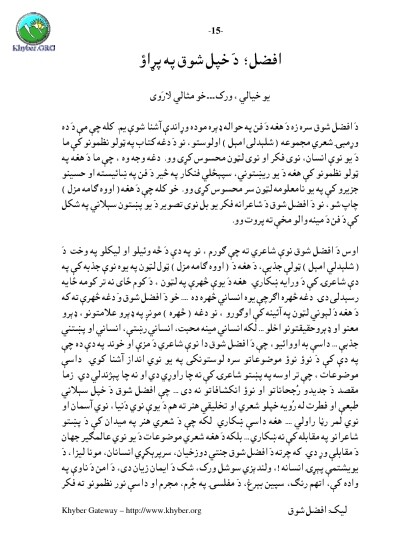 Khyber.ORG
-15-
افضل؛ دَ خپل شوق په پړاؤ
يو خيالي ، ورک...خو مثالي لارَوى
دَ افضل شوق سره زه دَ هغه دَ فن په حواله ډېره موده وړاندې آشنا شوې يم. کله چې مې دَ ده
وړمبۍ شعري مجموعه ( ښليدلى امېل ) اولوستو، نو دَ دغه کتاب په ټولو نظمونو کې ما
دَ يو نوې انسان، نوى فکر او نوى لټون محسوس کړى وو. دغه وجه وه ، چې ما دَ هغه په
ټولو نظمونو کې هغه دَ يو ريښتونې، سپېڅلې فنکار په خېر دَ فن په ښائيسته او حسينو
جزيرو کې په يو نامعلومه لټون سر محسوس کړى وو. خو کله چې دَ هغه ( اووه ګامه مزل )
چاپ شو، نو دَ افضل شوق دَ شاعرانه فکر يو بل نوى تصوير دَ يو پښتون سېلانې په شکل
کې دَ فن دَ مينه والو مخې ته پروت وو.
اوس دَ افضل شوق نوې شاعرۍ ته چې ګورم ، نو په دې دَ څه وئيلو او ليکلو په وخت دَ
( ښليدلى امېل ) ټولې جذبې، دَ هغه دَ ( اووه ګامه مزل ) ټول لټون په يوه نوې جذبه کې په
دې شاعرۍ کې دَ ورايه ښکارى. هغه دَ يوې څهرې په لټون ، دَ کوم ځاى نه تر کومه ځايه
رسېدلى دى. دغه څهره اګرچې يوه انسانى څهره ده ... خو دَ افضل شوق وَ دغه څهرې ته که
دَ هغه دَ ليونى لټون په آئينه کې اوګورو ، نو دَ دغه ( څهره ) مونږ په ډېرو علامتونو، ډېرو
معنو او ډېرو حقيقتونو اخلو ... لکه انسانى مينه محبت، انسانى رښتې، انسانى او پښتنې
جذبې ... داسې به اووائيو ، چې دَ افضل شوق دا نوې شاعرى دَ مزې او خوند په دې ده چې
په دې کې دَ نوؤ نوؤ موضوعاتو سره لوستونکى په يو نوى انداز آشنا کوى. داسې
موضوعات ، چې تر اوسه په پښتو شاعرۍ کې نه چا راوړي دي او نه چا پېژندلي دي. زما
مقصد دَ جديدو رُجحاناتو او نوؤ انکشافاتو نه دى ... چې افضل شوق دَ خپل سېلانې
طبعې او فطرت له رُويه خپلو شعري او تخليقى هنر ته هم دَ يوې نوې دُنيا، نوې آسمان او
نوى لمر رڼا راولى ... هغه داسې ښکارى لکه چې دَ شعرى هنر په ميدان کې دَ پښتو
شاعرانو په مقابله کې نه ښکارى... بلکه دَ هغه شعرى موضوعات دَ يو نوى عالمګير جهان
دَ مقابلې وړ دى. که چرته دَ افضل شوق جنتي دوزخيان، سرپرېکړي انسانان، مونا ليزا، دَ
يويشتمې پېړۍ انسانه!، ولندېزي سوشل ورک، شک دَ ايمان زيان دى، دَ امن دَ ناوې په
واده کې، اتهم رنګ، سپين بېرغ، دَ مفلسۍ په جُرم، مجرم او داسې نور نظمونو ته فکر
ليک: افضل شوق
Khyber Gateway – http://www.khyber.org